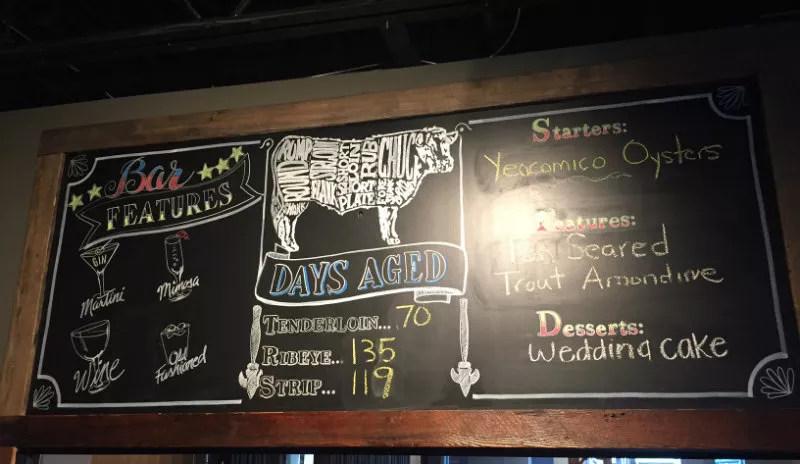 Bar
FEATURES
GIN
Martini
Mimosa
Wine
Old
Fashioned
ROUND
RUMP
SIRLOIN
FLANK
SHORT
LOIN
RIB
CHUCK
PLATE
SHANK
DAYS AGED
TENDERLOIN... 70
RIBEYE... 135
STRIP... 119
Starters:
Yeacomico Oysters
Features:
Pan Seared
Trout Amondine
Desserts:
Wedding Cake